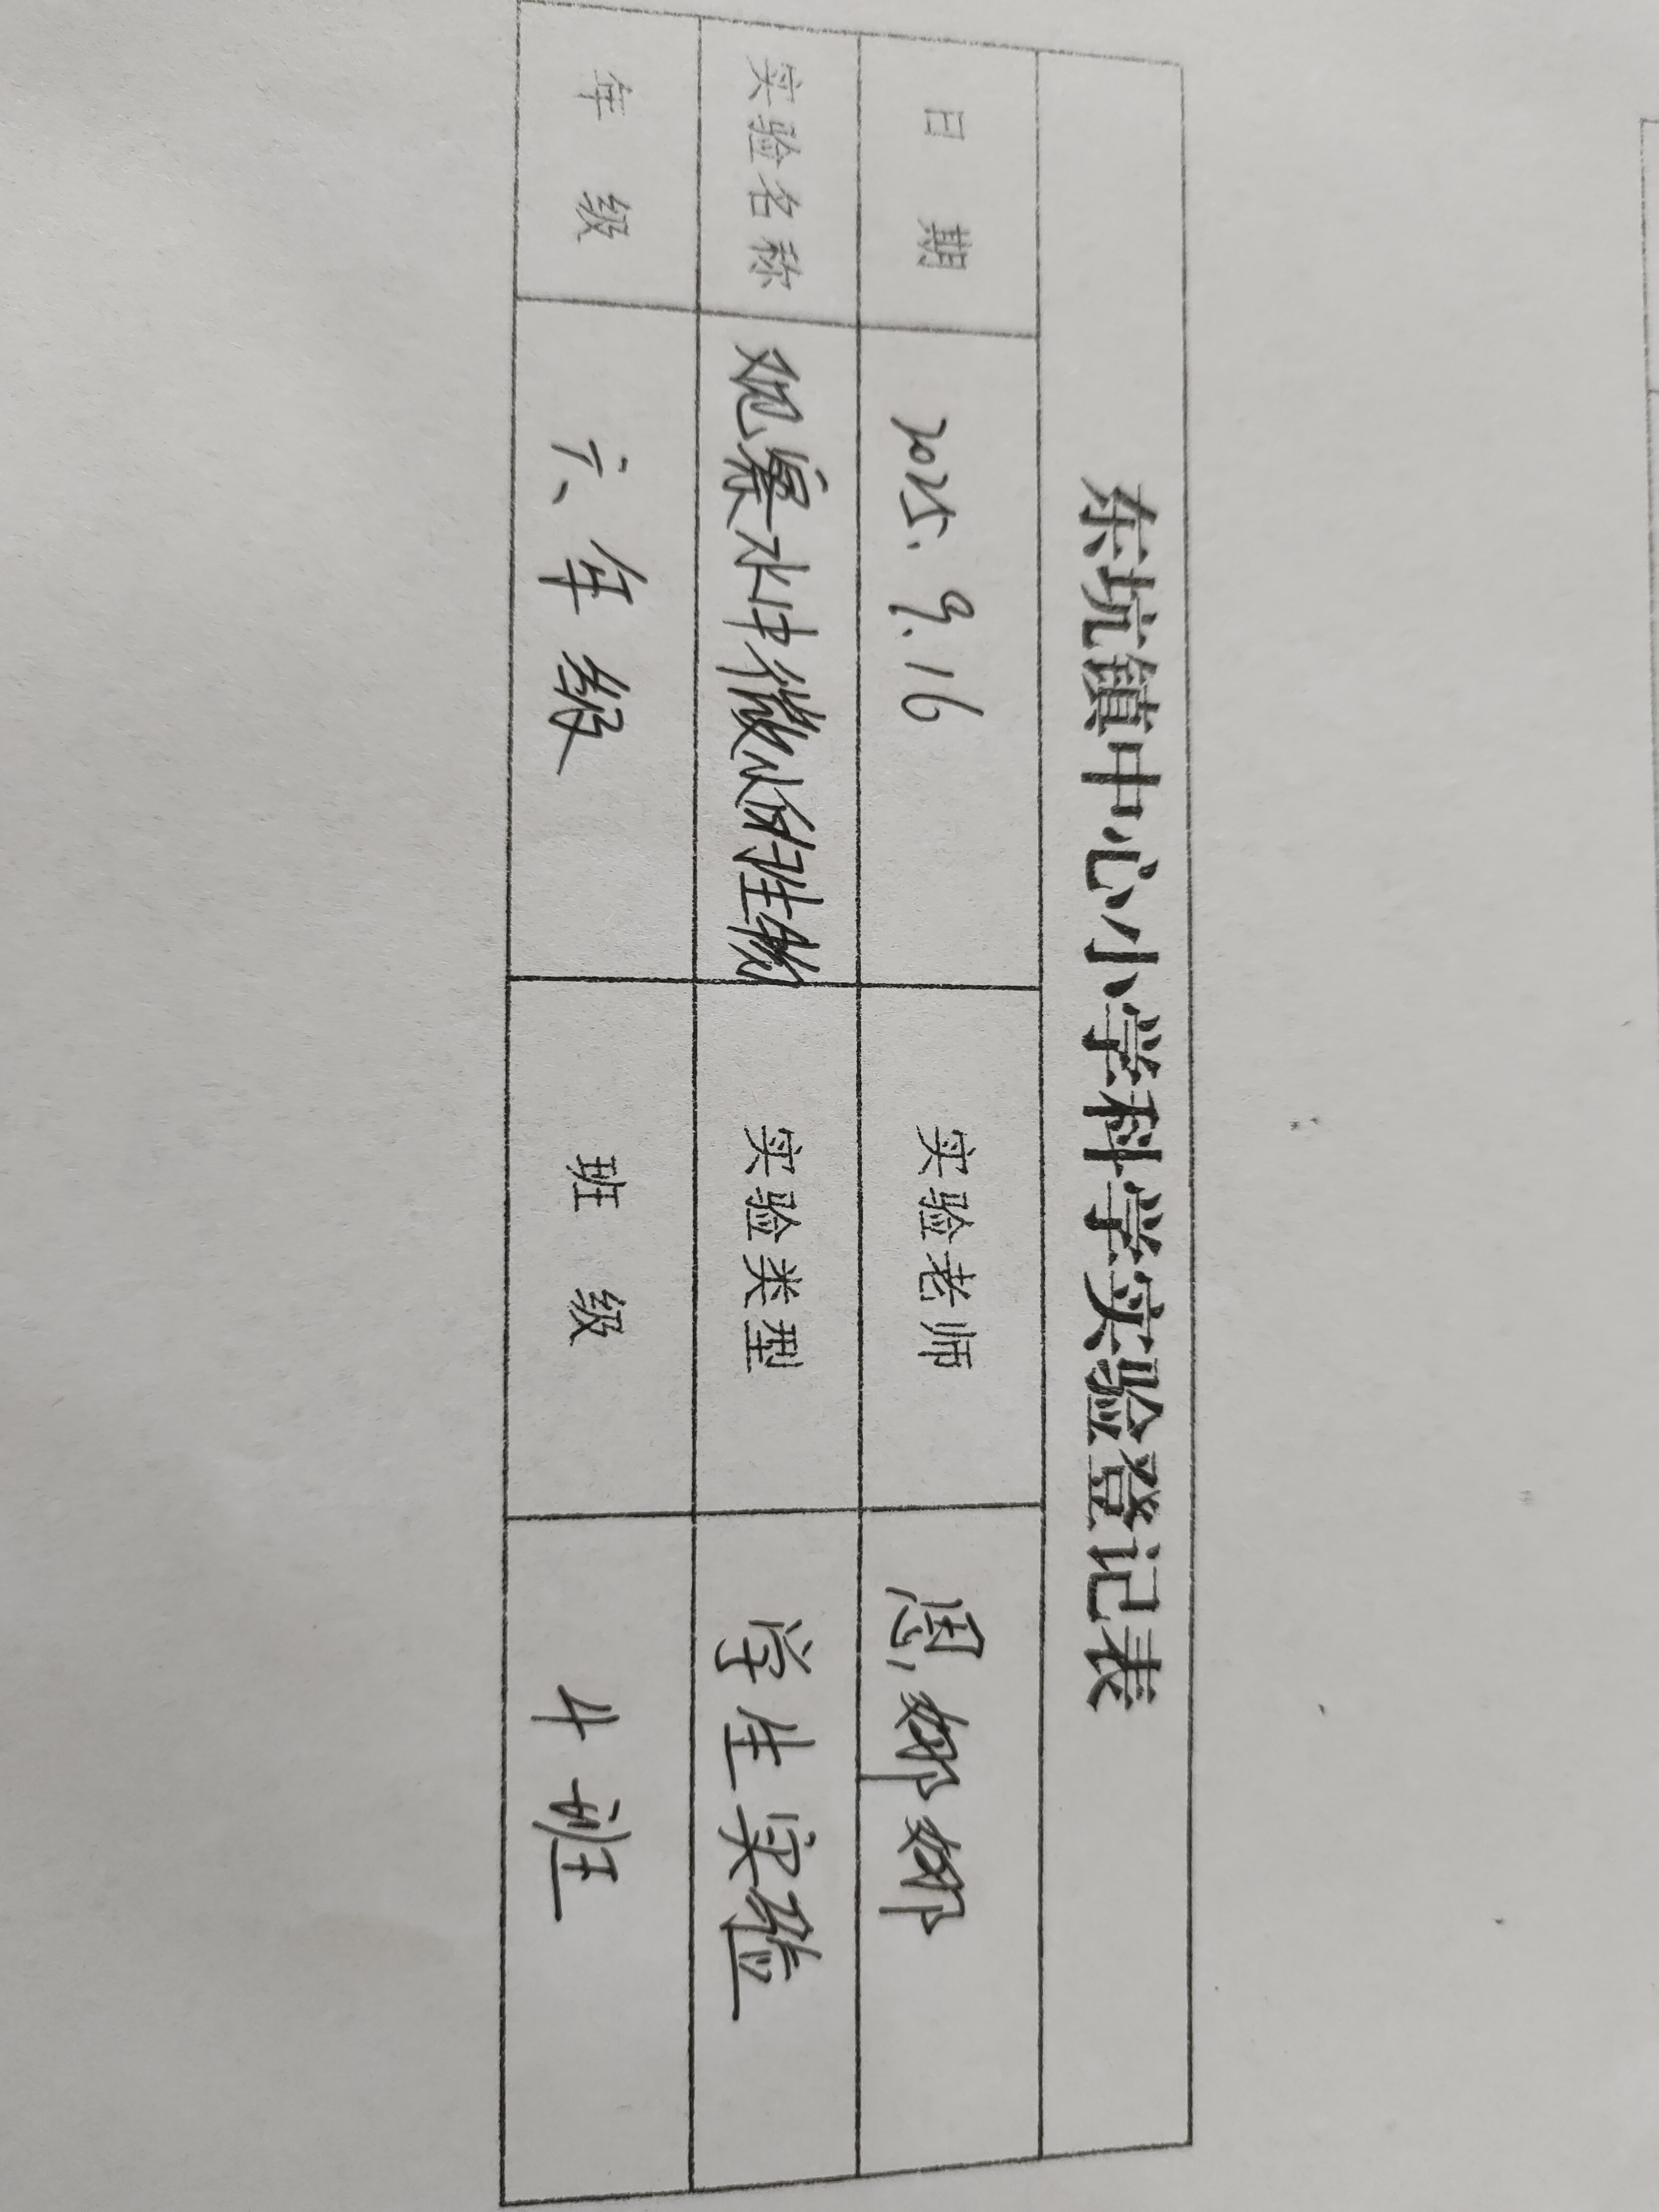 东坑镇中心小学科学实验登记表
日 期 2025.9.16 实验老师 恩娜娜
实验名称 观察水中微小的生物 实验类型 学生实验
年 级 六年级 班 级 4班